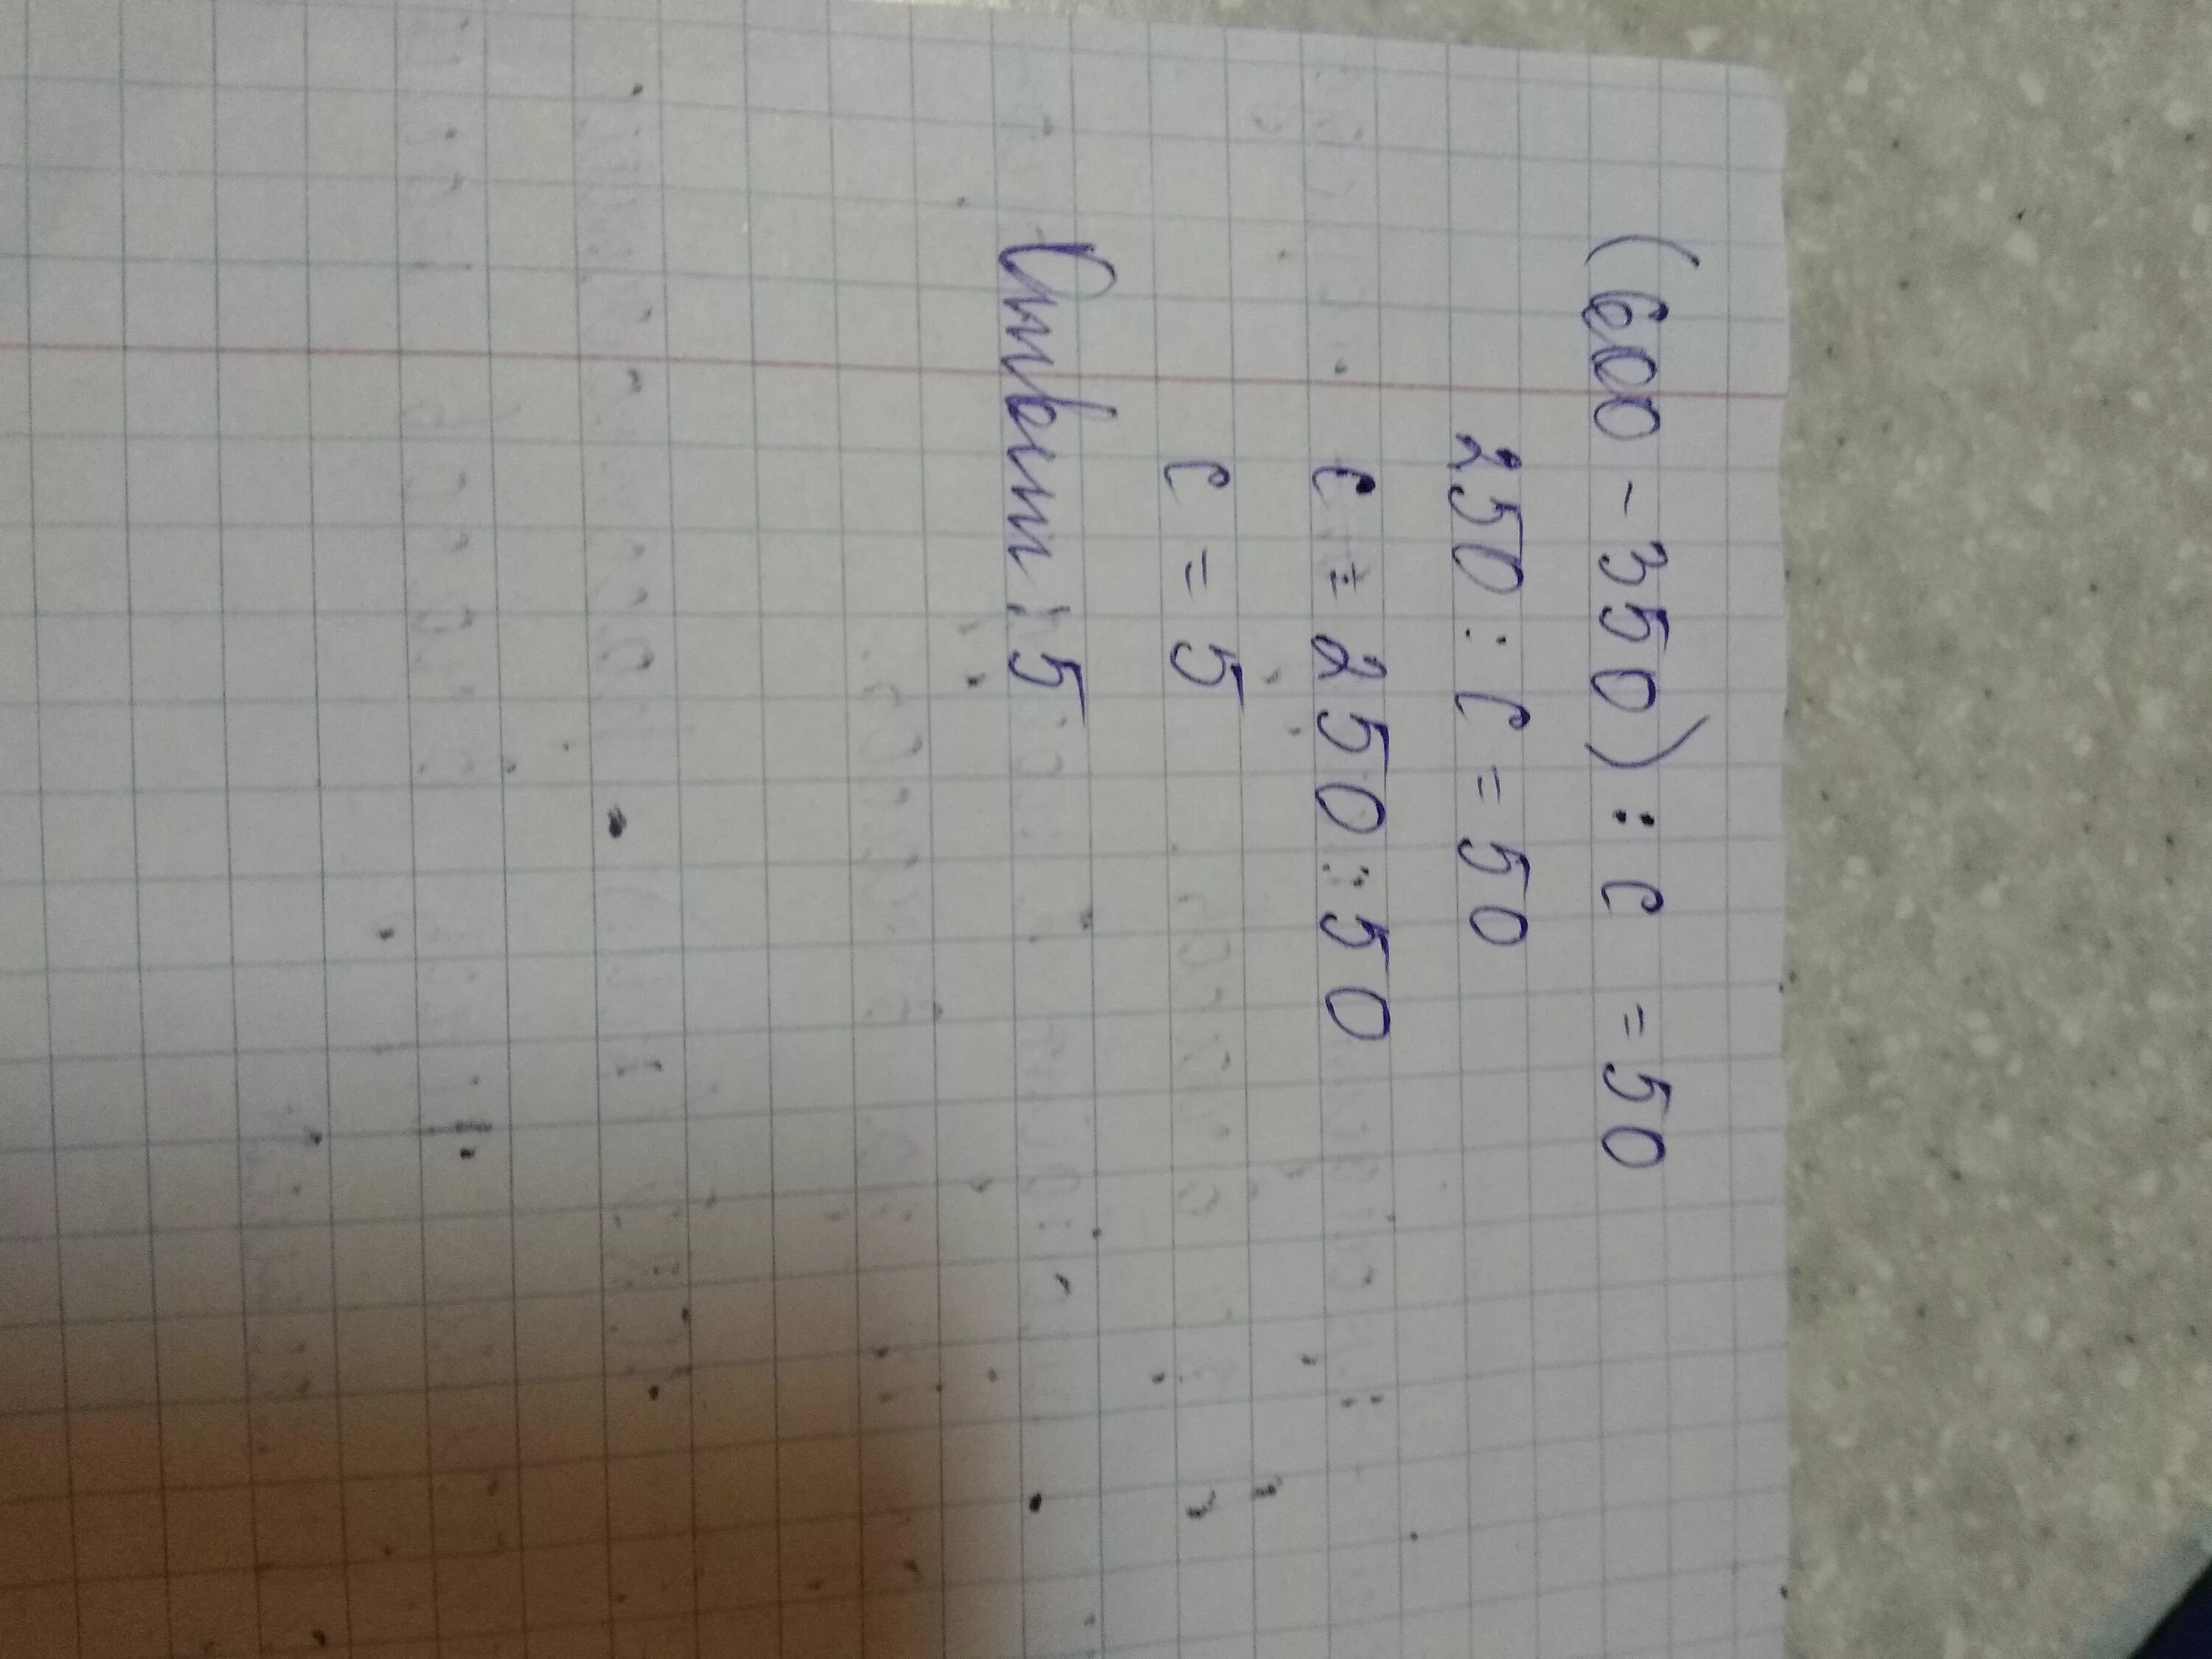 (600 - 350) : c = 50
250 : c = 50
c = 250 : 50
c = 5
Ответ: 5